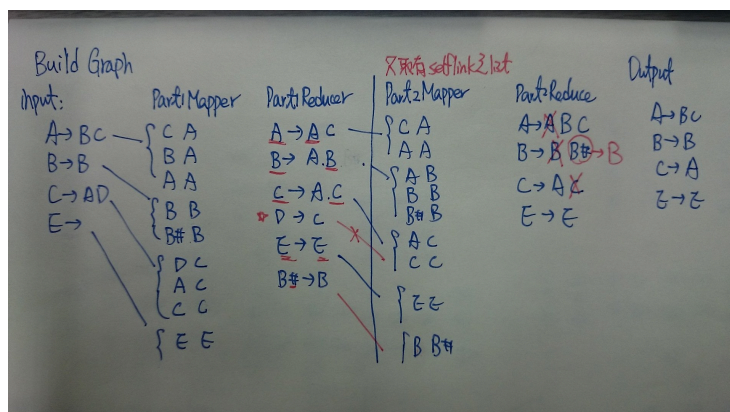 Build Graph
Input:
A→BC
B→B
C→AD
E→
Part1 Mapper
C A
B A
A A
B B
B# B
D C
A C
C C
E E
Part1 Reducer
A→A C
B→A.B
C→A.C
D→C
E→E
B#→B
只取有selflink之list
Part2 Mapper
C A
A A
A B
B B
B# B
A C
C C
E E
B B#
Part2 Reduce
A→A B C
B→B B#→B
C→A C
E→E
Output
A→BC
B→B
C→A
E→E